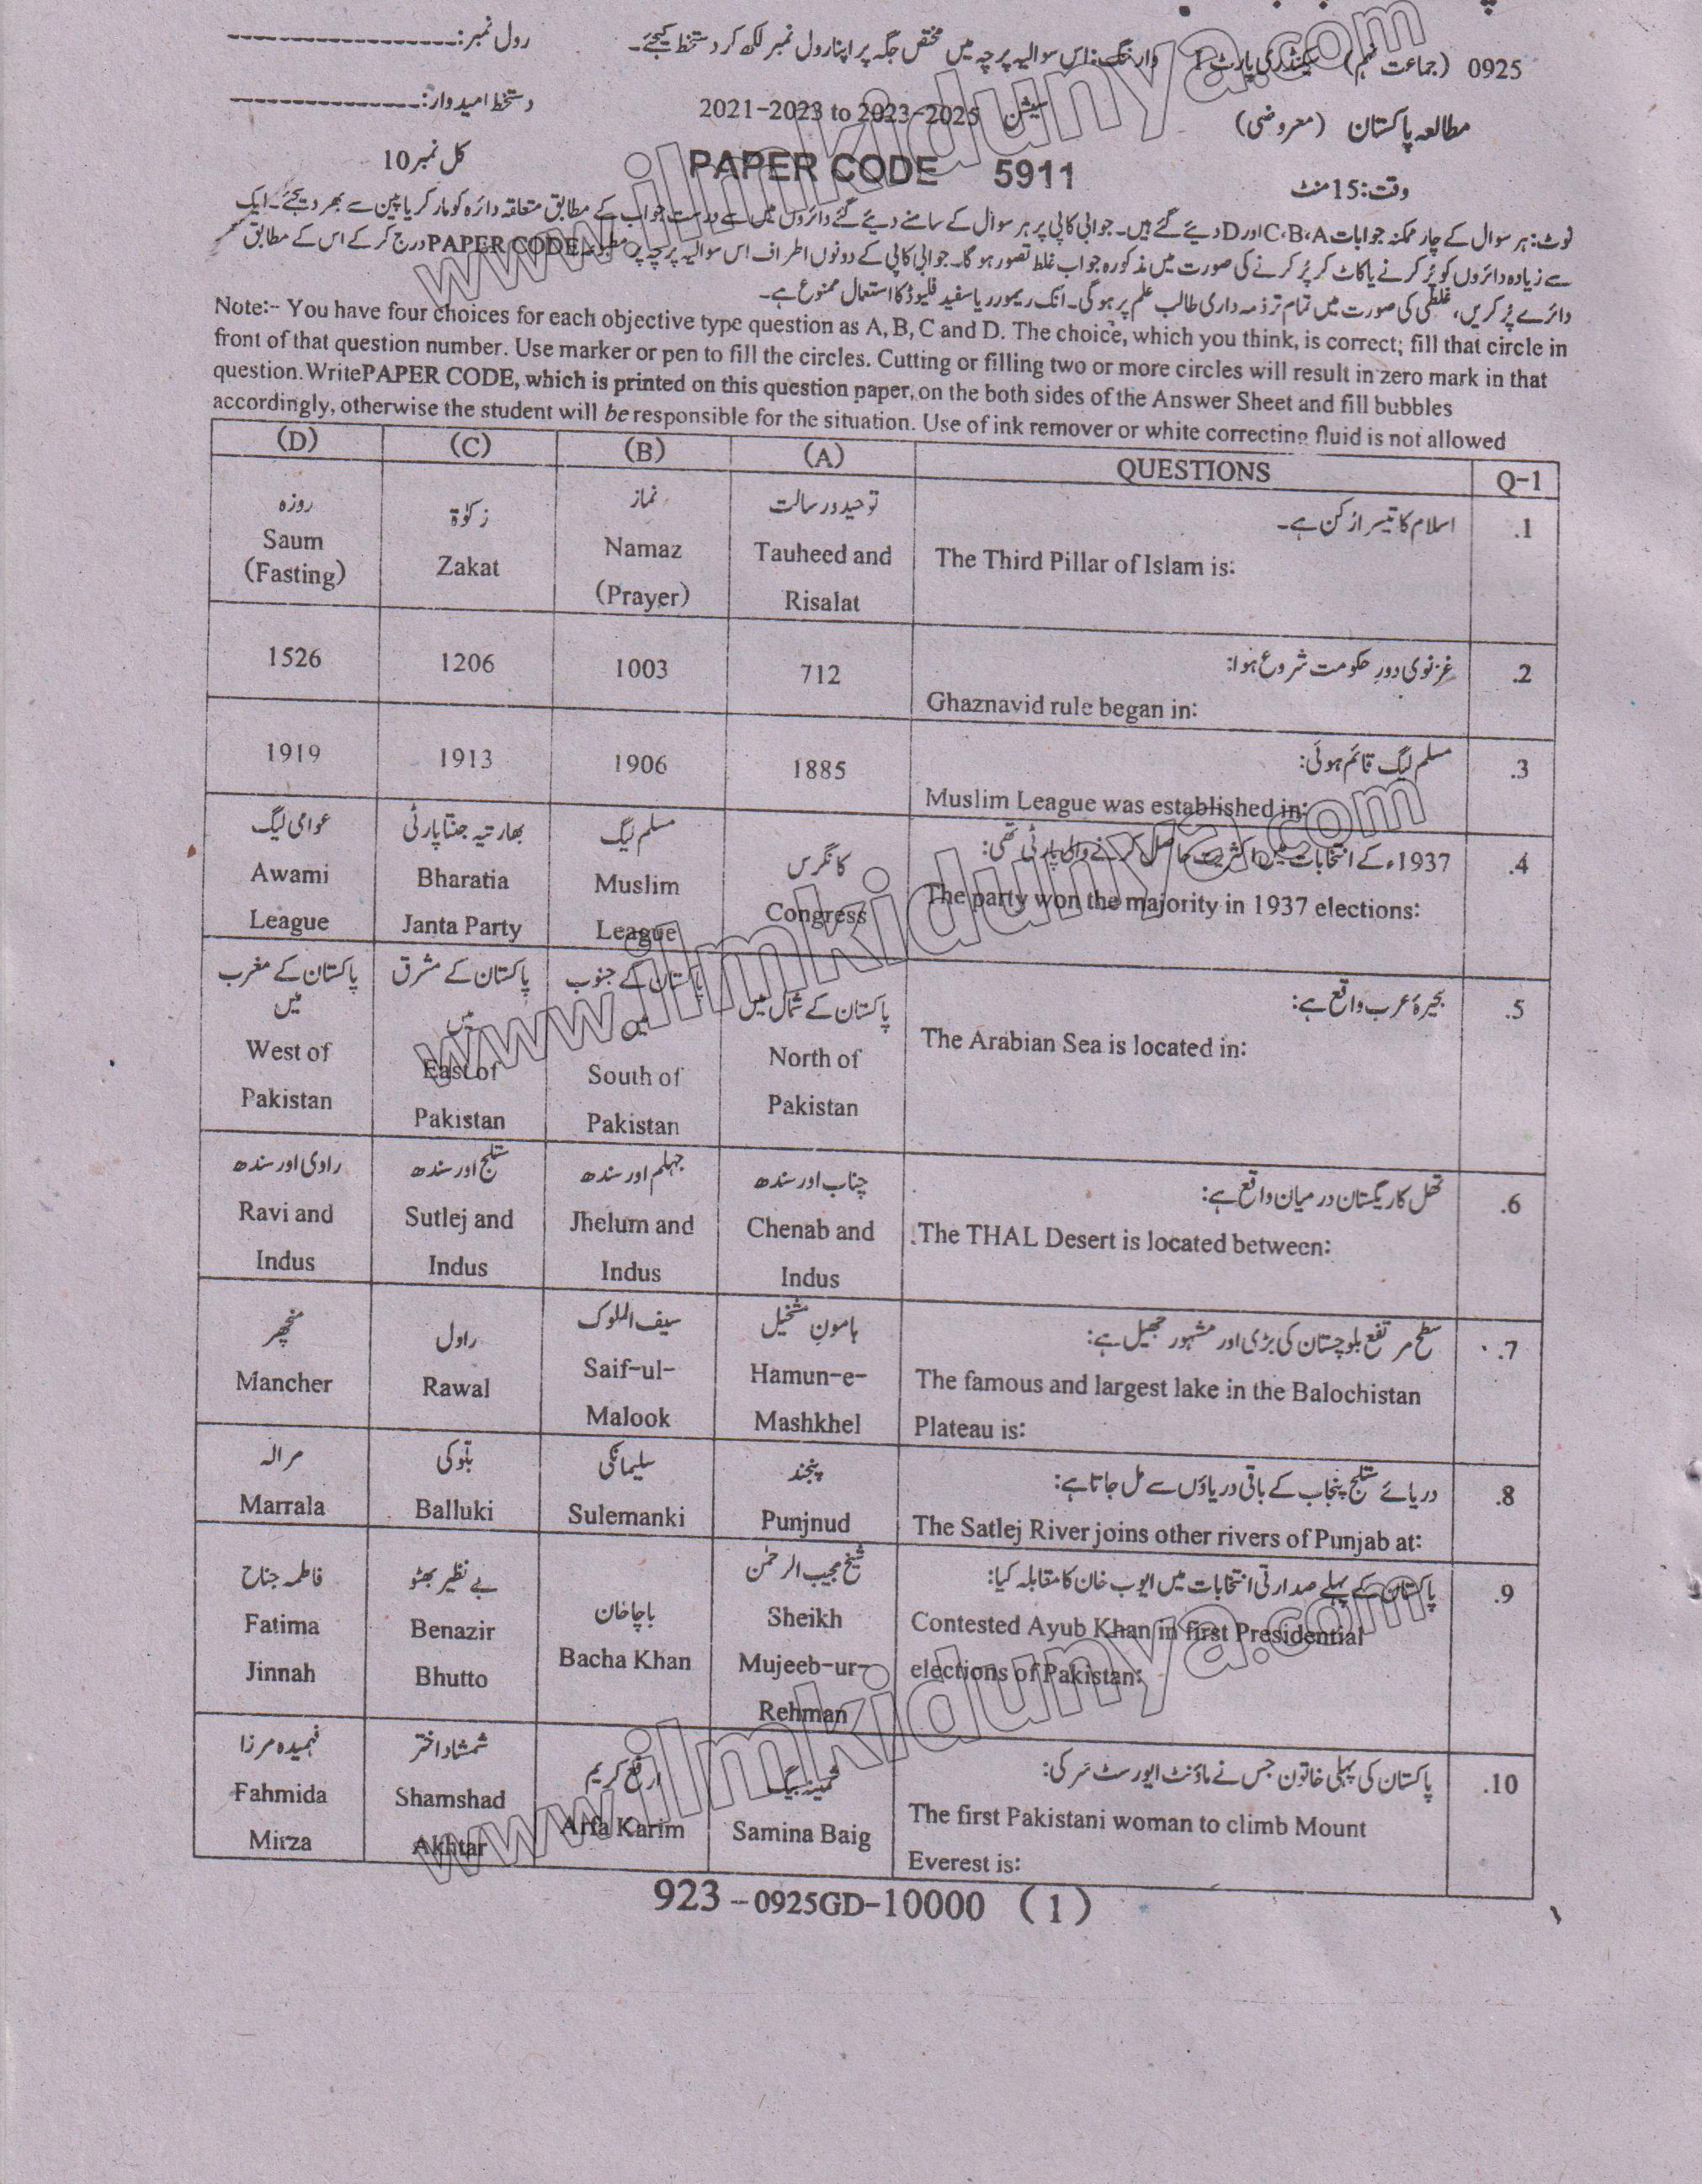 0925 (جماعت نہم) سیکنڈری پارٹ 1 وارننگ: اس سوالیہ پرچہ میں مختص جگہ پر اپنا رول نمبر لکھ کر دستخط کیجئے۔ رول نمبر:
مطالعہ پاکستان (معروضی) سیشن 2021-2023 to 2023-2025 دستخط امیدوار:
وقت: 15 منٹ PAPER CODE 5911 کل نمبر 10
نوٹ: ہر سوال کے چار ممکنہ جوابات C،B،A اور D دیئے گئے ہیں۔ جوابی کاپی پر ہر سوال کے سامنے دیئے گئے دائروں میں سے درست جواب کے مطابق متعلقہ دائرہ کو مارکر یا پین سے بھر دیجئے۔ ایک
سے زیادہ دائروں کو پُر کرنے یا کاٹ کر پُر کرنے کی صورت میں مذکورہ جواب غلط تصور ہوگا۔ جوابی کاپی کے دونوں اطراف اس سوالیہ پرچہ پر مطبوعہ PAPER CODE درج کر کے اس کے مطابق
دائرے پُر کریں، غلطی کی صورت میں تمام تر ذمہ داری طالب علم پر ہوگی۔ انک ریموور یا سفید فلیوڈ کا استعمال ممنوع ہے۔
Note:- You have four choices for each objective type question as A, B, C and D. The choice, which you think, is correct; fill that circle in
front of that question number. Use marker or pen to fill the circles. Cutting or filling two or more circles will result in zero mark in that
question.WritePAPER CODE, which is printed on this question paper, on the both sides of the Answer Sheet and fill bubbles
accordingly, otherwise the student will be responsible for the situation. Use of ink remover or white correcting fluid is not allowed
(D) (C) (B) (A) QUESTIONS Q-1
اسلام کا تیسرا رکن ہے۔ .1
The Third Pillar of Islam is:
توحید و رسالت
Tauheed and
Risalat
نماز
Namaz
(Prayer)
زکوٰۃ
Zakat
روزہ
Saum
(Fasting)
غزنوی دورِ حکومت شروع ہوا: .2
Ghaznavid rule began in:
1526 1206 1003 712
مسلم لیگ قائم ہوئی: .3
Muslim League was established in:
1919 1913 1906 1885
1937ء کے انتخابات میں اکثریت حاصل کرنے والی پارٹی تھی: .4
The party won the majority in 1937 elections:
کانگرس
Congress
مسلم لیگ
Muslim
League
بھارتیہ جنتا پارٹی
Bharatia
Janta Party
عوامی لیگ
Awami
League
بحیرۂ عرب واقع ہے: .5
The Arabian Sea is located in:
پاکستان کے شمال میں
North of
Pakistan
پاکستان کے جنوب
میں
South of
Pakistan
پاکستان کے مشرق
میں
East of
Pakistan
پاکستان کے مغرب
میں
West of
Pakistan
تھل کا ریگستان درمیان واقع ہے: .6
The THAL Desert is located between:
چناب اور سندھ
Chenab and
Indus
جہلم اور سندھ
Jhelum and
Indus
ستلج اور سندھ
Sutlej and
Indus
راوی اور سندھ
Ravi and
Indus
سطح مرتفع بلوچستان کی بڑی اور مشہور جھیل ہے: .7
The famous and largest lake in the Balochistan
Plateau is:
ہامونِ مشخیل
Hamun-e-
Mashkhel
سیف الملوک
Saif-ul-
Malook
راول
Rawal
منچھر
Mancher
دریائے ستلج پنجاب کے باقی دریاؤں سے مل جاتا ہے: .8
The Satlej River joins other rivers of Punjab at:
پنجند
Punjnud
سلیمانکی
Sulemanki
بلوکی
Balluki
مرالہ
Marrala
پاکستان کے پہلے صدارتی انتخابات میں ایوب خان کا مقابلہ کیا: .9
Contested Ayub Khan in first Presidential
elections of Pakistan:
شیخ مجیب الرحمٰن
Sheikh
Mujeeb-ur-
Rehman
باچا خان
Bacha Khan
بے نظیر بھٹو
Benazir
Bhutto
فاطمہ جناح
Fatima
Jinnah
پاکستان کی پہلی خاتون جس نے ماؤنٹ ایورسٹ سَر کی: .10
The first Pakistani woman to climb Mount
Everest is:
ثمینہ بیگ
Samina Baig
ارفع کریم
Arfa Karim
شمشاد اختر
Shamshad
Akhtar
فہمیدہ مرزا
Fahmida
Mirza
923 - 0925GD-10000 (1)
www.ilmkidunya.com
www.ilmkidunya.com
www.ilmkidunya.com